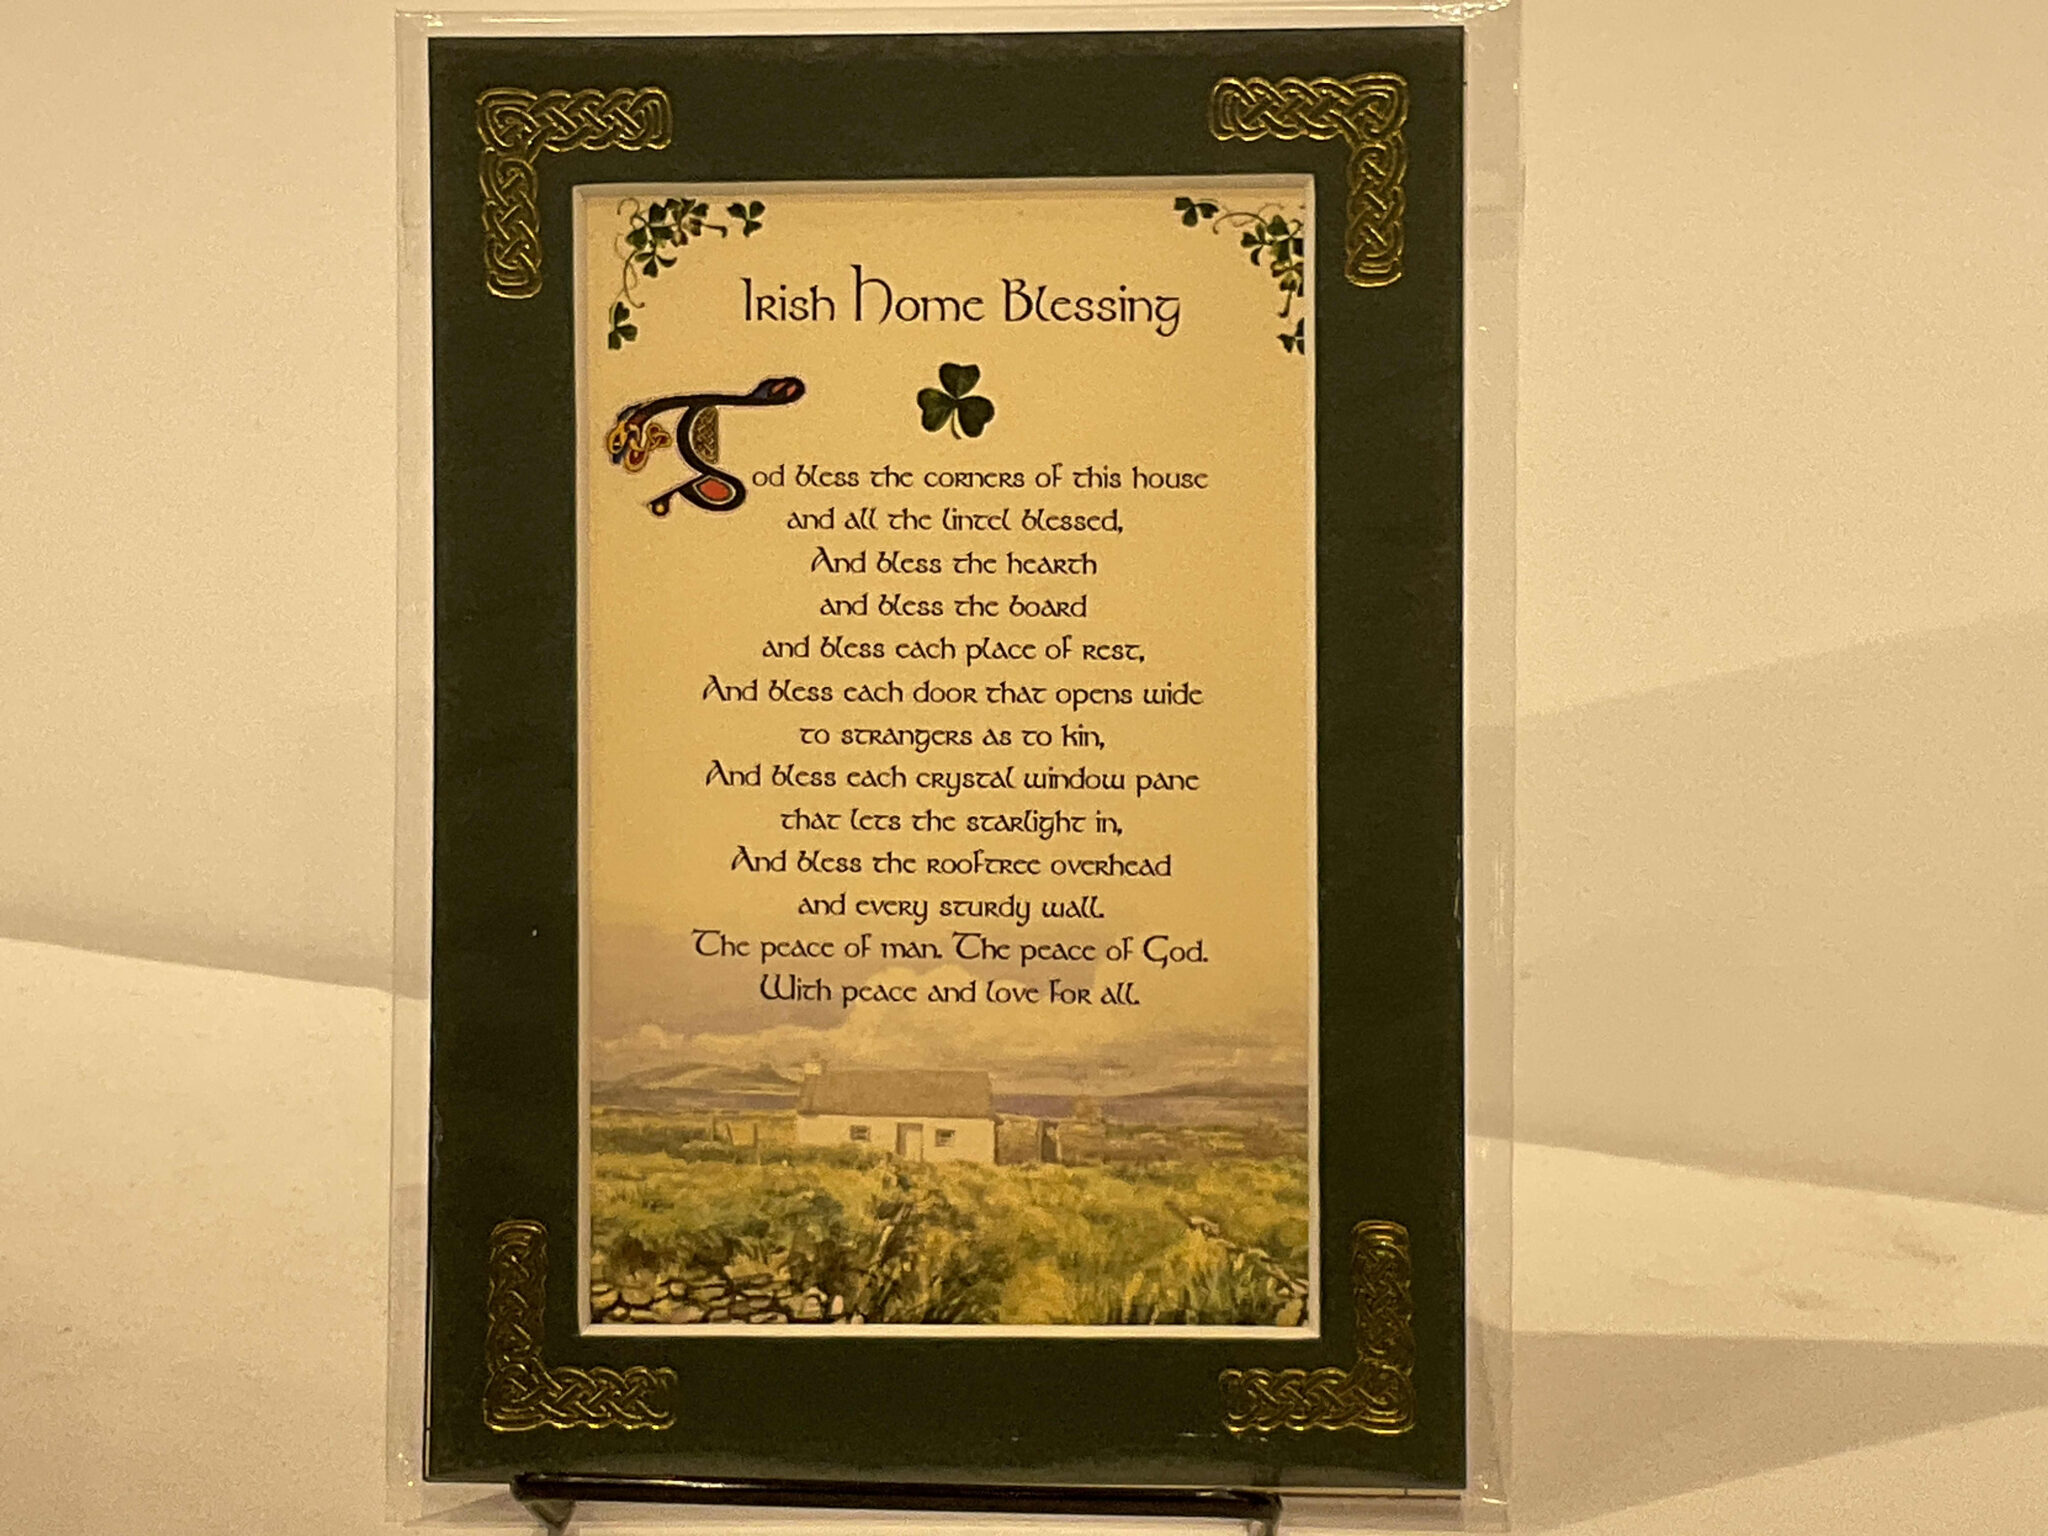 Irish Home Blessing
God bless the corners of this house
and all the lintel blessed,
And bless the hearth
and bless the board
and bless each place of rest,
And bless each door that opens wide
to strangers as to kin,
And bless each crystal window pane
that lets the starlight in,
And bless the rooftree overhead
and every sturdy wall.
The peace of man. The peace of God.
With peace and love for all.